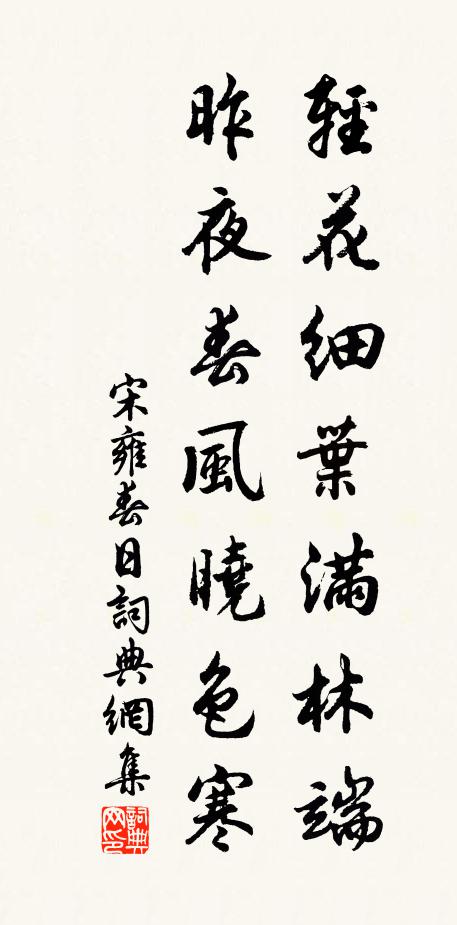 輕花細葉滿林端
昨夜春風曉色寒
宋雍春日詞典網集
詞典网印